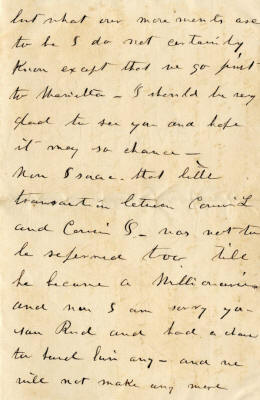 but what our movements are
to be I do not certainly
know except that we go first
to Marietta – I should be very
glad to see you and hope
it may so chance –
Now Isaac that little
transaction between Cousin L
and Cousin S – was not to
be referred too till
he became a Millionaire
and now I am sorry you
saw Rud and had a chance
to send him any – and we
will not make any more